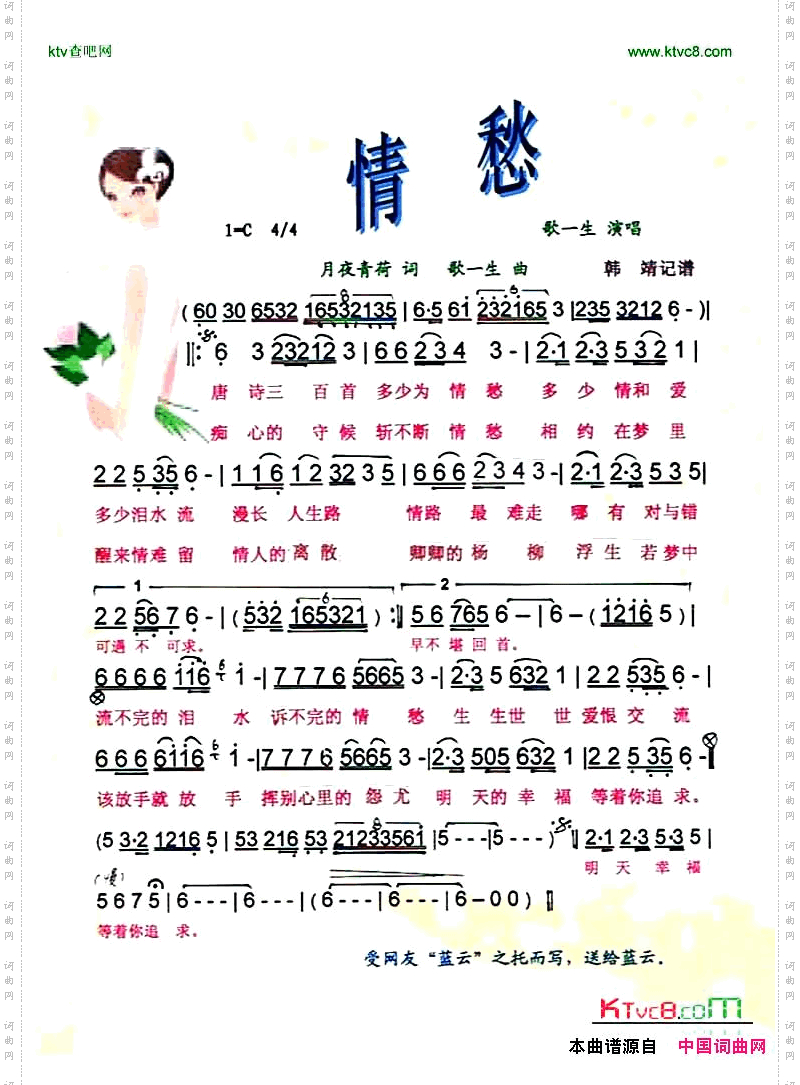 ktv查吧网 www.ktvc8.com
情愁
1=C 4/4 歌一生 演唱
月夜青荷 词 歌一生 曲 韩 靖记谱
(60 30 6532 16532135 | 6·5 61 232165 3 | 235 3212 6 - )|
‖: 6 3 23212 3 | 6 6 2 3 4 3 - | 2·1 2·3 5 3 2 1 |
唐 诗三 百首 多少为 情 愁 多 少 情和 爱
痴 心的 守候 斩不断 情 愁 相 约 在梦 里
2 2 5 35 6 - | 1 1 6 1 2 32 3 5 | 6 6 6 2 3 4 3 - | 2·1 2·3 5 3 5 |
多少泪水 流 漫长 人生路 情路 最 难走 哪 有 对与错
醒来情难 留 情人的 离散 卿卿的 杨 柳 浮 生 若 梦中
1
2
2 2 56 7 6 - | (532 165321) :‖ 5 6 765 6 - | 6 - (1216 5) |
可遇 不 可求。 早不 堪 回 首。
6 6 6 6 116 6 1 - | 7 7 7 6 5665 3 - | 2·3 5 632 1 | 2 2 535 6 - |
流不完的 泪 水 诉不完的 情 愁 生 生世 世 爱恨 交 流
6 6 6 6116 1 - | 7 7 7 6 5665 3 - | 2·3 505 632 1 | 2 2 5 35 6 - ‖
该放手就 放 手 挥别心里的 怨尤 明 天的 幸 福 等着你追 求。
(5 3·2 1216 5 | 53 216 53 21233561 | 5 - - - | 5 - - - ) 2·1 2·3 5·3 5 |
明 天 幸 福
(慢)
5 6 7 5 | 6 - - - | 6 - - - | (6 - - - | 6 - - - | 6 - 0 0 ) ‖
等着你追 求。
受网友“蓝云”之托而写，送给蓝云．
KTvc8.com
本曲谱源自 中国词曲网
词曲网